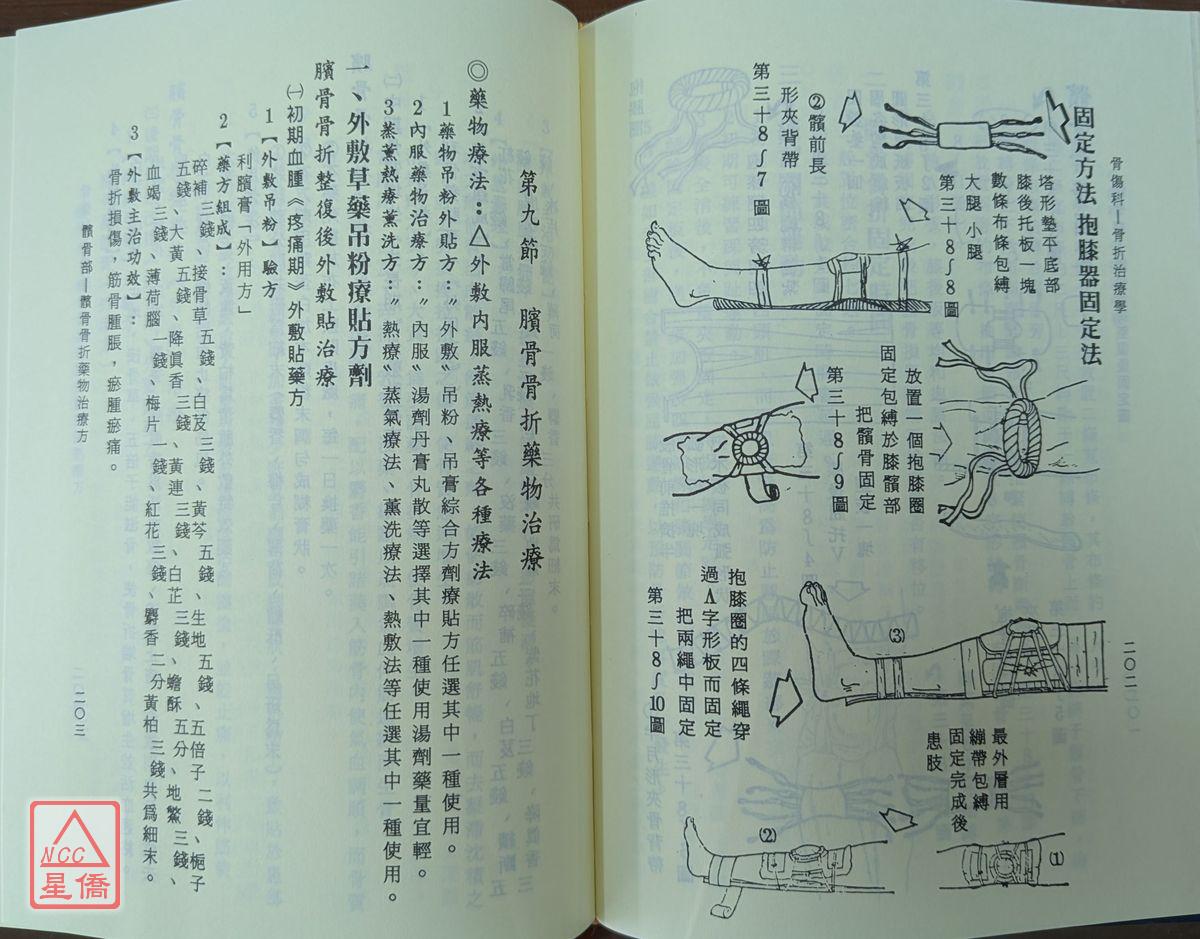 骨傷科—骨折治療學
二〇二
固定方法 抱膝器固定法
塔形墊平底部
膝後托板一塊
數條布條包縛
大腿 小腿
第三十8∫8圖
②髕前長
形夾背帶
第三十8∫7圖
放置一個抱膝圈
固定包縛於膝髕部
把髕骨固定
第三十8∫9圖
抱膝圈的四條繩穿
過Λ字形板而固定
把兩繩中固定
第三十8∫10圖
(3)
最外層用
繃帶包縛
固定完成後
患肢
(1)
(2)
第九節 臏骨骨折藥物治療
◎藥物療法：△外敷內服蒸熱療等各種療法
1藥物吊粉外貼方：〝外敷〞吊粉、吊膏綜合方劑療貼方任選其中一種使用。
2內服藥物治療方：〝內服〞湯劑丹膏丸散等選擇其中一種使用湯劑藥量宜輕。
3蒸薰熱療薰洗方：〝熱療〞蒸氣療法、薰洗療法、熱敷法等任選其中一種使用。
一、外敷草藥吊粉療貼方劑
臏骨骨折整復後外敷貼治療
㈠初期血腫《疼痛期》外敷貼藥方
1【外敷吊粉】驗方
利臏膏「外用方」
2【藥方組成】：
碎補三錢、接骨草五錢、白芨三錢、黃芩五錢、生地五錢、五倍子二錢、梔子
五錢、大黃五錢、降眞香三錢、黃連三錢、白芷三錢、蟾酥五分、地鱉三錢、
血竭三錢、薄荷腦一錢、梅片一錢、紅花三錢、麝香二分黃柏三錢共爲細末。
3【外敷主治功效】：
骨折損傷，筋骨腫脹，瘀腫瘀痛。
髕骨部—髕骨骨折藥物治療方
二〇三
NCC
星僑